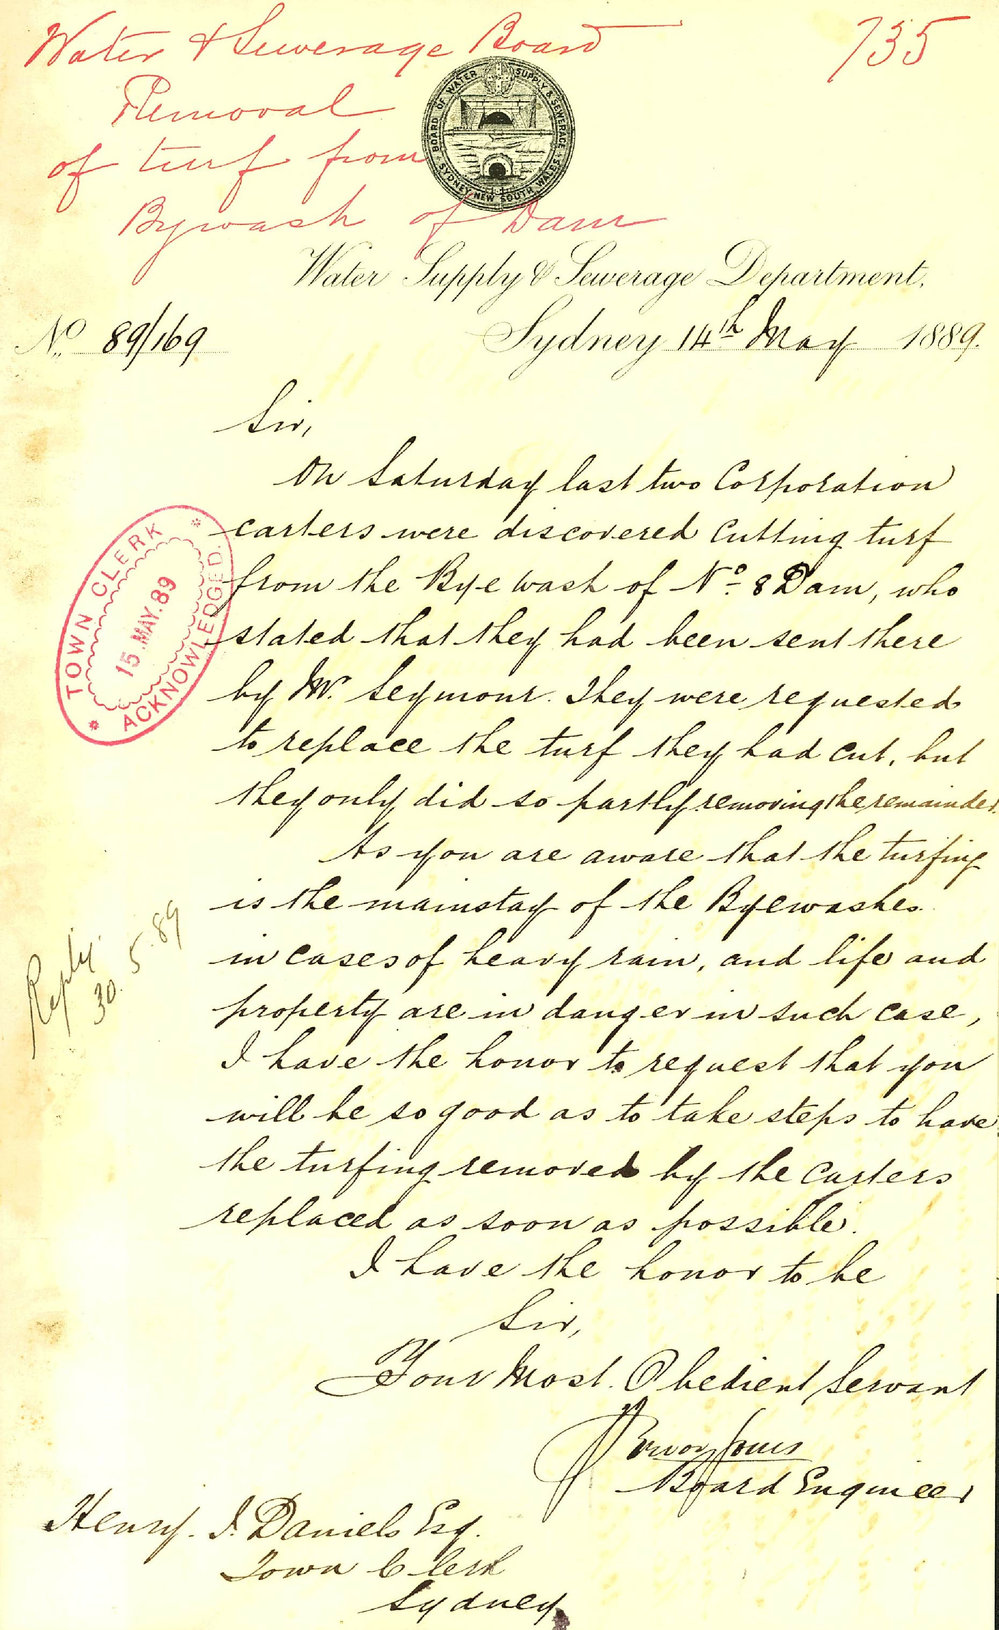 Water & Sewerage Board
735
Removal
of turf from
Bywash of Dam
BOARD OF WATER SUPPLY & SEWERAGE
SYDNEY NEW SOUTH WALES
Water Supply & Sewerage Department.
No. 89/169
Sydney 14th May 1889.
Sir,
On Saturday last two Corporation
carters were discovered cutting turf
from the Bye wash of No. 8 Dam, who
stated that they had been sent there
by Mr. Seymour. They were requested
to replace the turf they had cut, but
they only did so partly removing the remainder.
TOWN CLERK
15 MAY. 89
ACKNOWLEDGED
As you are aware that the turfing
is the mainstay of the Byewashes
in cases of heavy rain, and life and
property are in danger in such case,
I have the honor to request that you
will be so good as to take steps to have
the turfing removed by the carters
replaced as soon as possible.
Reply
30.5.89
I have the honor to be
Sir,
Your Most Obedient Servant
Trevor Jones
Board Engineer
Henry. J. Daniels Esq.
Town Clerk
Sydney